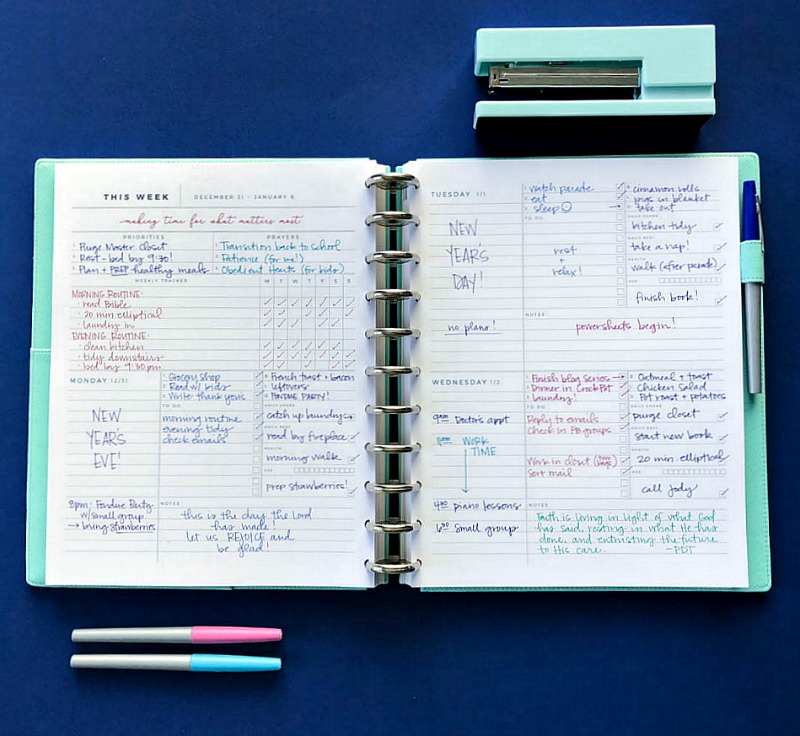 THIS WEEK
DECEMBER 31 - JANUARY 6
making time for what matters most
PRIORITIES
Purge Master closet
Rest - bed by 9:30!
Plan + PREP healthy meals
PRAYERS
Transition back to school
Patience (for me!)
Obedient Hearts (for kids)
WEEKLY TRACKER
M T W T F S S
MORNING ROUTINE:
· read Bible
· 20 min elliptical
· laundry in
EVENING ROUTINE:
· clean kitchen
· tidy downstairs
· bed by 9:30pm
MONDAY 12/31
NEW
YEAR'S
EVE!
8pm: Fondue Party
w/small group
→ bring strawberries
Grocery shop
Read w/ kids
Write thank yous
TO DO
morning routine
evening tidy
check emails
French toast + bacon
leftovers
FONDUE PARTY!
DAILY CHORE
catch up laundry
DAILY REST
read by fireplace
HEALTH
morning walk
prep strawberries!
NOTES
this is the day the Lord
has made!
let us REJOICE and
be glad!
TUESDAY 1/1
NEW
YEAR'S
DAY!
no plans!
watch parade
eat
sleep
TO DO
rest
+
relax!
cinnamon rolls
pigs in blanket
take out
DAILY CHORE
kitchen tidy
DAILY REST
take a nap!
HEALTH
walk (after parade)
finish book!
NOTES
powersheets begin!
WEDNESDAY 1/2
9am Doctor's appt
WORK
TIME
4:00 piano lessons
6:30 small group
Finish blog series →
Dinner in CrockPot
Laundry!
TO DO
Reply to emails
Check in FB groups
Work in closet (two bags)
Sort mail
Oatmeal + toast
Chicken Salad
Pot roast + potatoes
DAILY CHORE
purge closet
DAILY REST
start new book
HEALTH
20 min elliptical
call Jody
NOTES
Faith is living in light of what God
has said, resting in what He has
done, and entrusting the future
to His care. -PDT